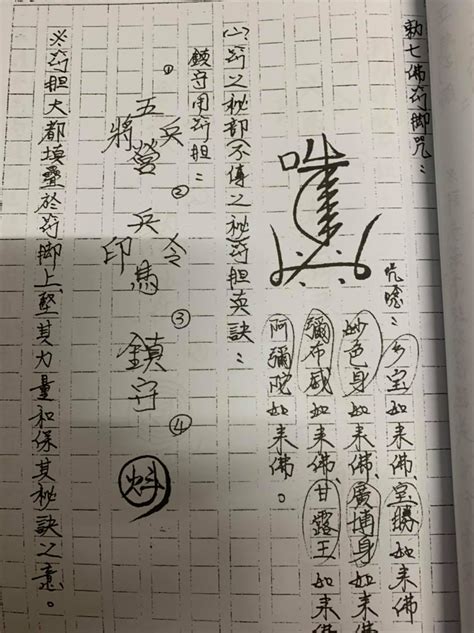 勅七佛符脚咒：
咒唸：多宝如来佛、宝勝如来佛
妙色身如来佛、廣博身如来佛
彌布威如来佛、甘露王如来佛
阿彌陀如来佛。
(一)符之秘部不傳之秘符胆英訣：
鎮守用符胆：
①五兵營將②兵令馬印③鎮守④
※符胆大都填疊於符脚上、墊其力量和保其秘訣之意。